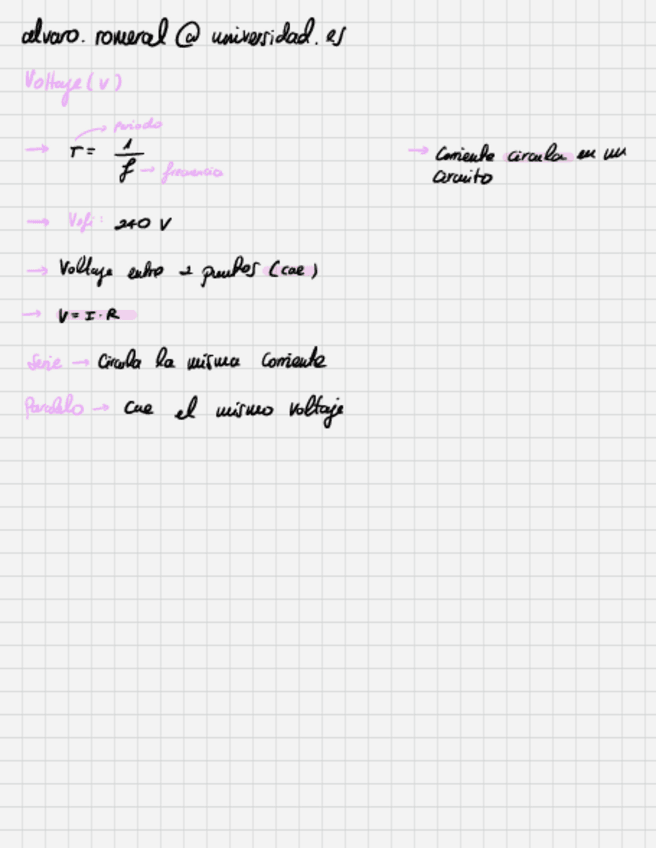 alvaro.romeral@universidad.es
Voltaje (V)
→ periodo
→ T = 1/f → frecuencia
→ Corriente circula en un
circuito
→ Vefi: 240 V
→ Voltaje entre 2 puntos (cae)
→ V = I · R
Serie → Circula la misma corriente
Paralelo → Cae el mismo voltaje